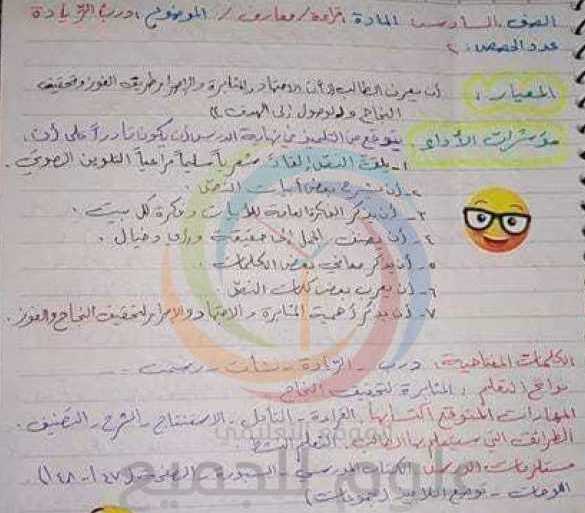 الصف السادس المادة قراءة/معارف/ الموضوع: درب الريادة
عدد الحصص: ٢
المعيار: أن يعرف الطالب أن الاجتهاد والمثابرة والإصرار طريق الفوز وتحقيق
النجاح والوصول إلى الهدف
مؤشرات الأداء: يتوقع من التلميذ في نهاية الدرس أن يكون قادراً على أن:
١- يلقي النص إلقاءً شعرياً سليماً مراعياً التلوين الصوتي.
٢- أن يشرح بعض أبيات النص.
٣- أن يذكر الفكرة العامة للأبيات وفكرة كل بيت.
٤- أن يصنف الجمل إلى حقيقة ورأي وخيال.
٥- أن يذكر معاني بعض الكلمات.
٦- أن يعرب بعض كلمات النص.
٧- أن يذكر أهمية المثابرة والاجتهاد والإصرار لتحقيق النجاح والفوز.
الكلمات المفتاحية: درب - الريادة -
نواتج التعلم: المثابرة لتحقيق النجاح
المهارات المتوقع اكتسابها: القراءة - التأمل - الاستنتاج - الشرح - التصنيف.
الطرائق التي سيتعلم بها الطالب: التعلم النشط
مستلزمات الدرس: الكتاب المدرسي - السبورة - الصفحة (١٤٧ - ١٤٨)
اللوحات - توضع التلاميذ (مجموعات)
الموقع التعليمي
علوم للجميع